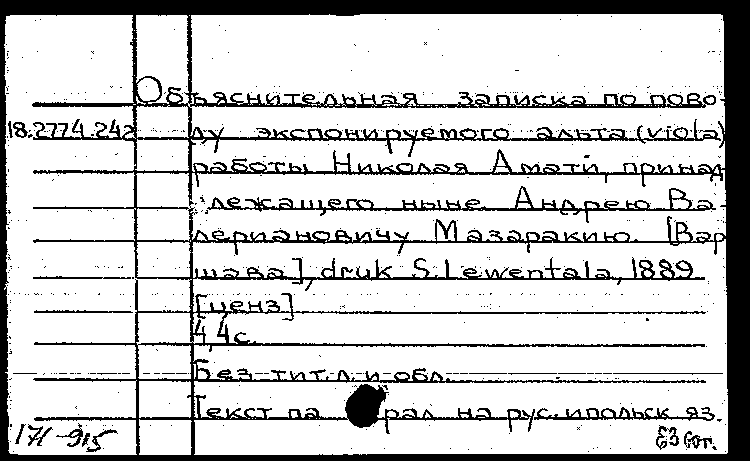 Объяснительная записка по пово-
18.2774.242 ду экспонируемого альта (viola)
работы Николая Амати, принад
лежащего ныне Андрею Ва-
лериановичу Мазаракию. [Вар
шава], druk S. Lewentala, 1889
[ценз]
4,4 с.
Без тит. л. и обл.
Текст па рал на рус. и польск яз.
171-915